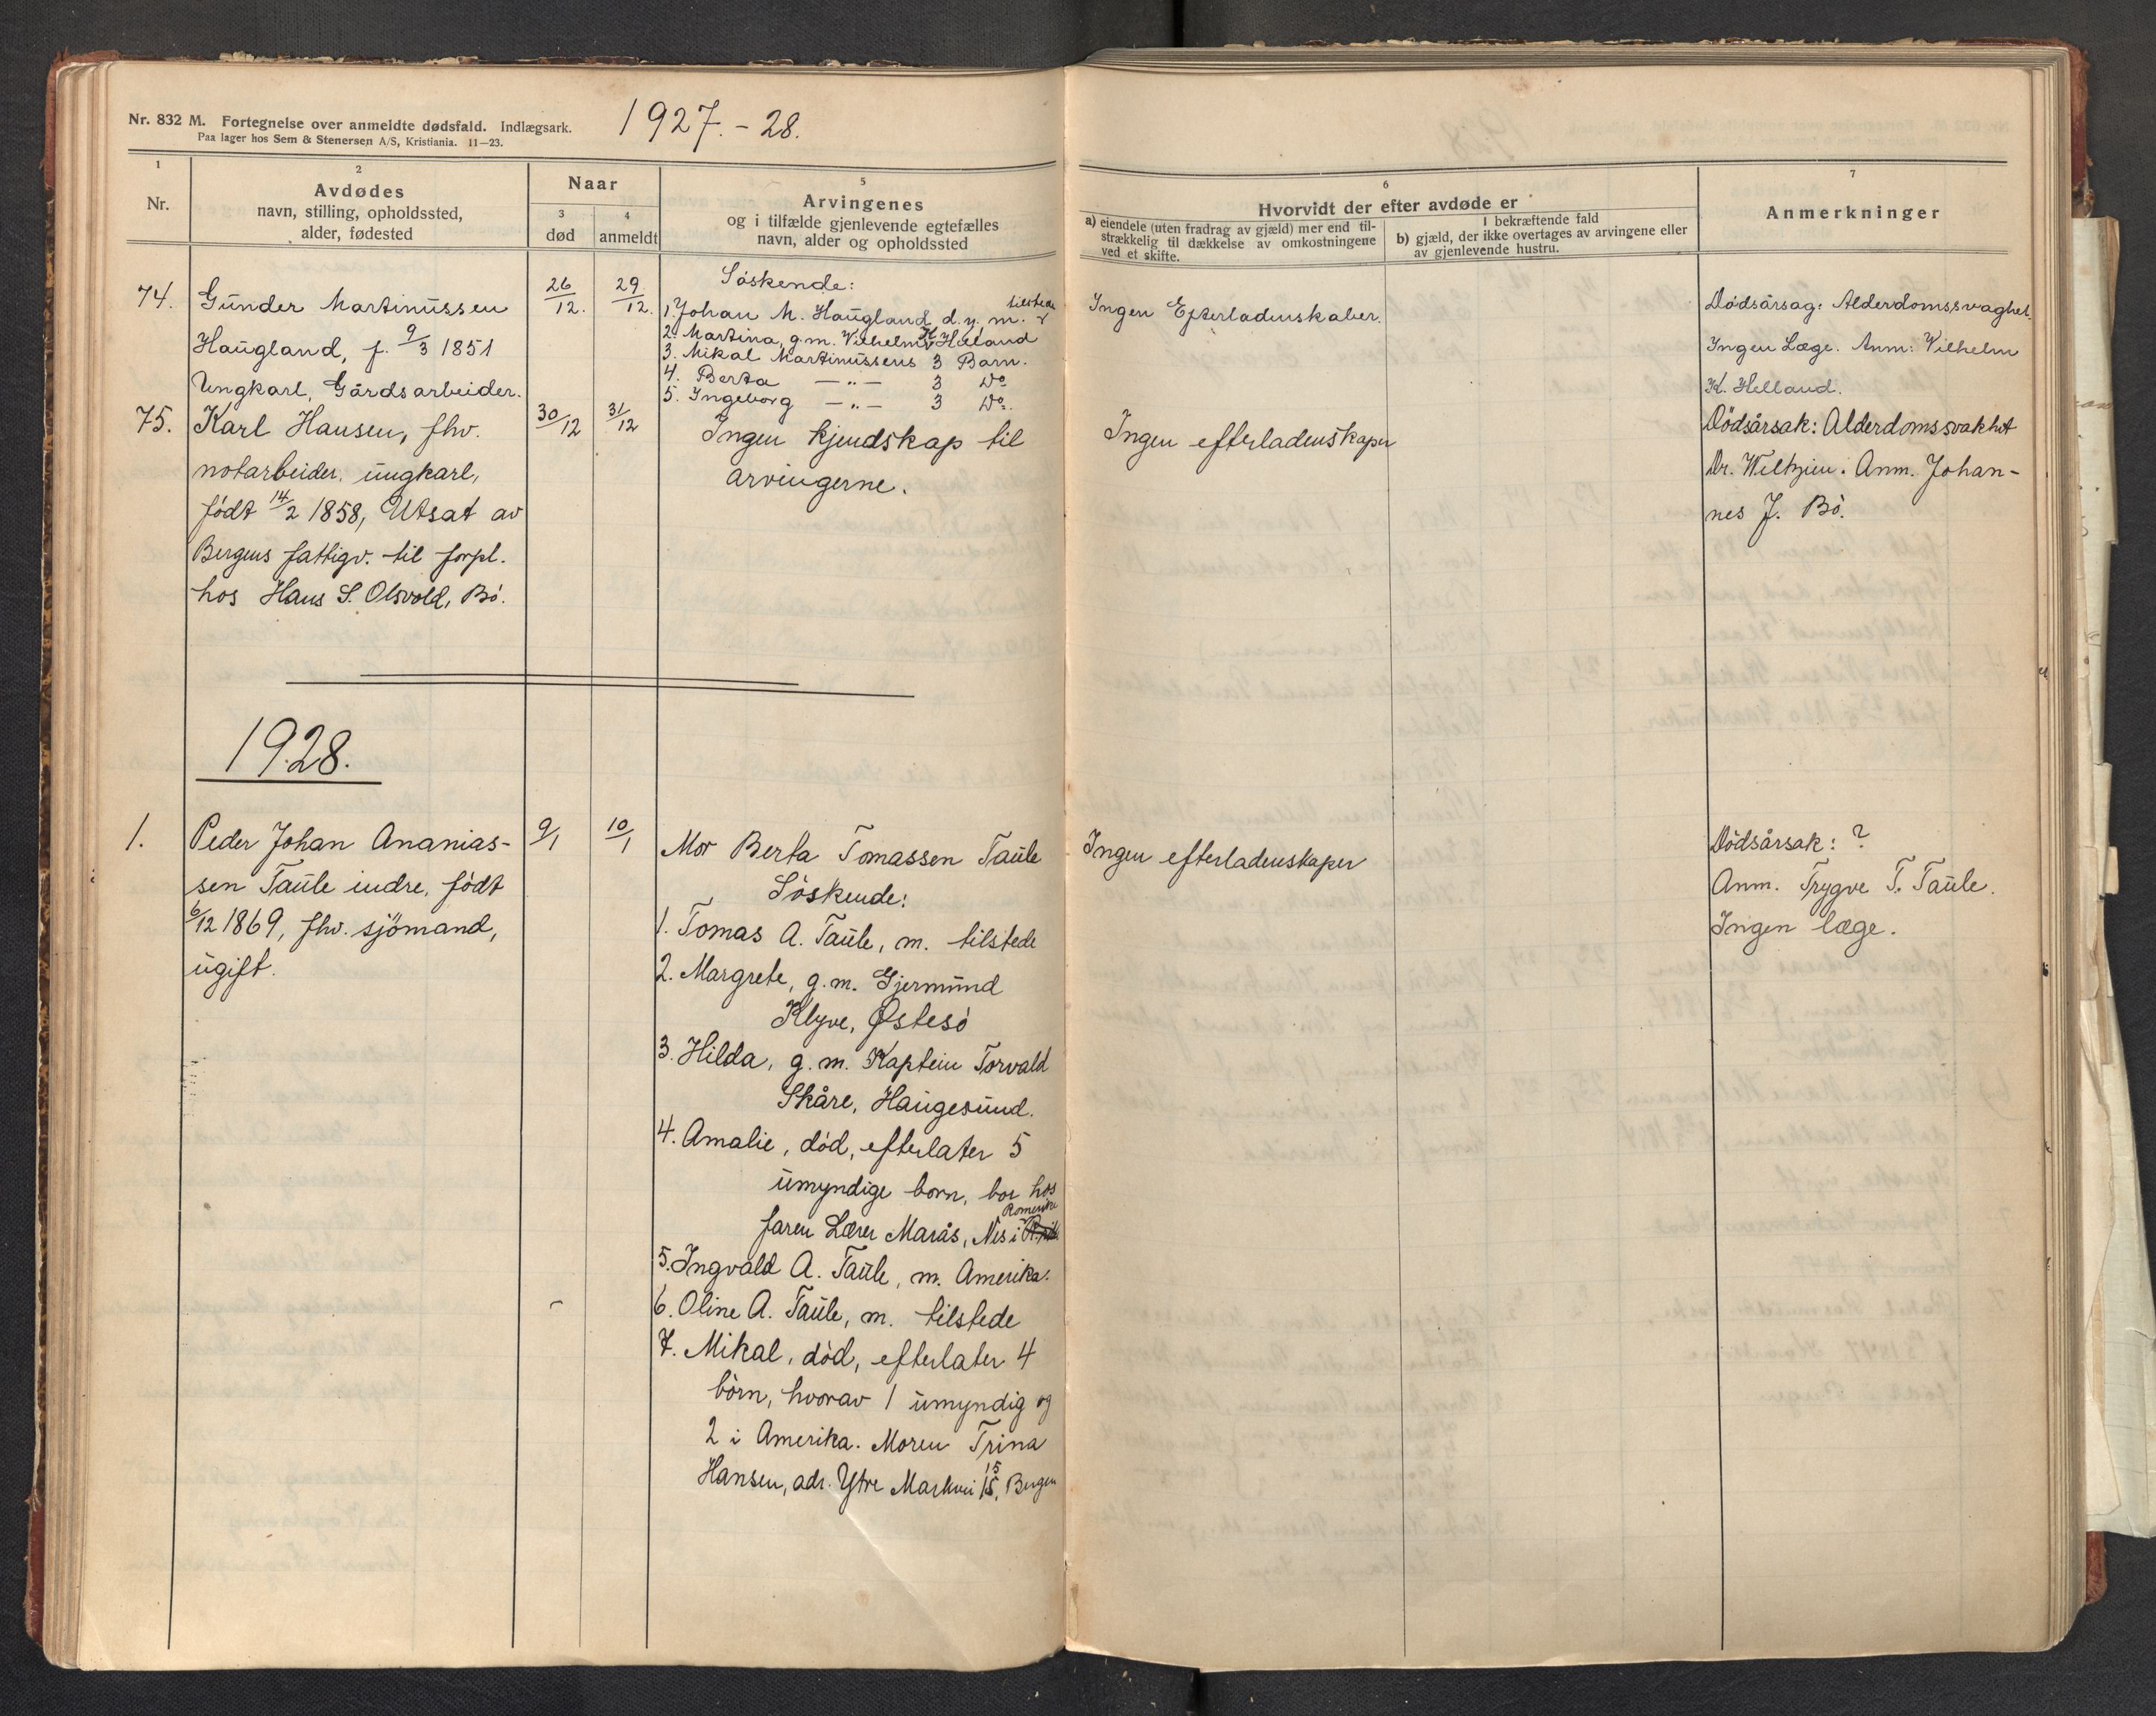 Nr. 832 M. Fortegnelse over anmeldte dødsfald. Indlægsark.
Paa lager hos Sem & Stenersen A/S, Kristiania. 11—23.
1927.-28.
1
Nr.
2
Avdødes
navn, stilling, opholdssted,
alder, fødested
Naar
3
død
4
anmeldt
5
Arvingenes
og i tilfælde gjenlevende egtefælles
navn, alder og opholdssted
6
Hvorvidt der efter avdøde er
a) eiendele (uten fradrag av gjæld) mer end til-
strækkelig til dækkelse av omkostningene
ved et skifte.
I bekræftende fald
b) gjæld, der ikke overtages av arvingene eller
av gjenlevende hustru.
7
Anmerkninger
74.
Gunder Martinussen
Haugland, f. 9/3 1851
Ungkarl, Gårdsarbeider.
26/12.
29/12.
Söskende:
1. Johan M. Haugland d.y. m. tilstede
2. Martina, g.m. Vilhelm K. Helland
3. Mikal Martinussens 3 Barn.
4. Berta —„— 3 Do
5. Ingeborg —„— 3 Do.
Ingen Efterladenskaber.
Dødsårsag: Alderdomssvaghet.
Ingen Læge. Anm: Vilhelm
K. Helland.
75.
Karl Hansen, fhv.
notarbeider, ungkarl,
født 14/2 1858, Utsat av
Bergens fattigv. til forpl.
hos Hans S. Olsvold, Bö.
30/12
31/12
Ingen kjendskap til
arvingerne.
Ingen efterladenskaper
Dödsårsak: Alderdomssvakhet
Dr. Wiltzien. Anm. Johan-
nes J. Bö.
1928.
1.
Peder Johan Ananias-
sen Taule indre, født
6/12 1869, fhv. sjömand,
ugift.
9/1
10/1
Mor Berta Tomassen Taule
Söskende:
1. Tomas A. Taule, m. tilstede
2. Margrete, g.m. Gjermund
Klyve, Østesö
3. Hilda, g.m. Kaptein Torvald
Skåre, Haugesund.
4. Amalie, död, efterlater 5
umyndige born, bor hos
faren Lærer Marås, Nes i Romerike
5. Ingvald A. Taule, m. Amerika.
6. Oline A. Taule, m. tilstede
7. Mikal, död, efterlater 4
börn, hvorav 1 umyndig og
2 i Amerika. Moren Trina
Hansen, adr. Ytre Markvei 15, Bergen
Ingen efterladenskaper
Dödsårsak: ?
Anm. Trygve T. Taule.
Ingen læge.